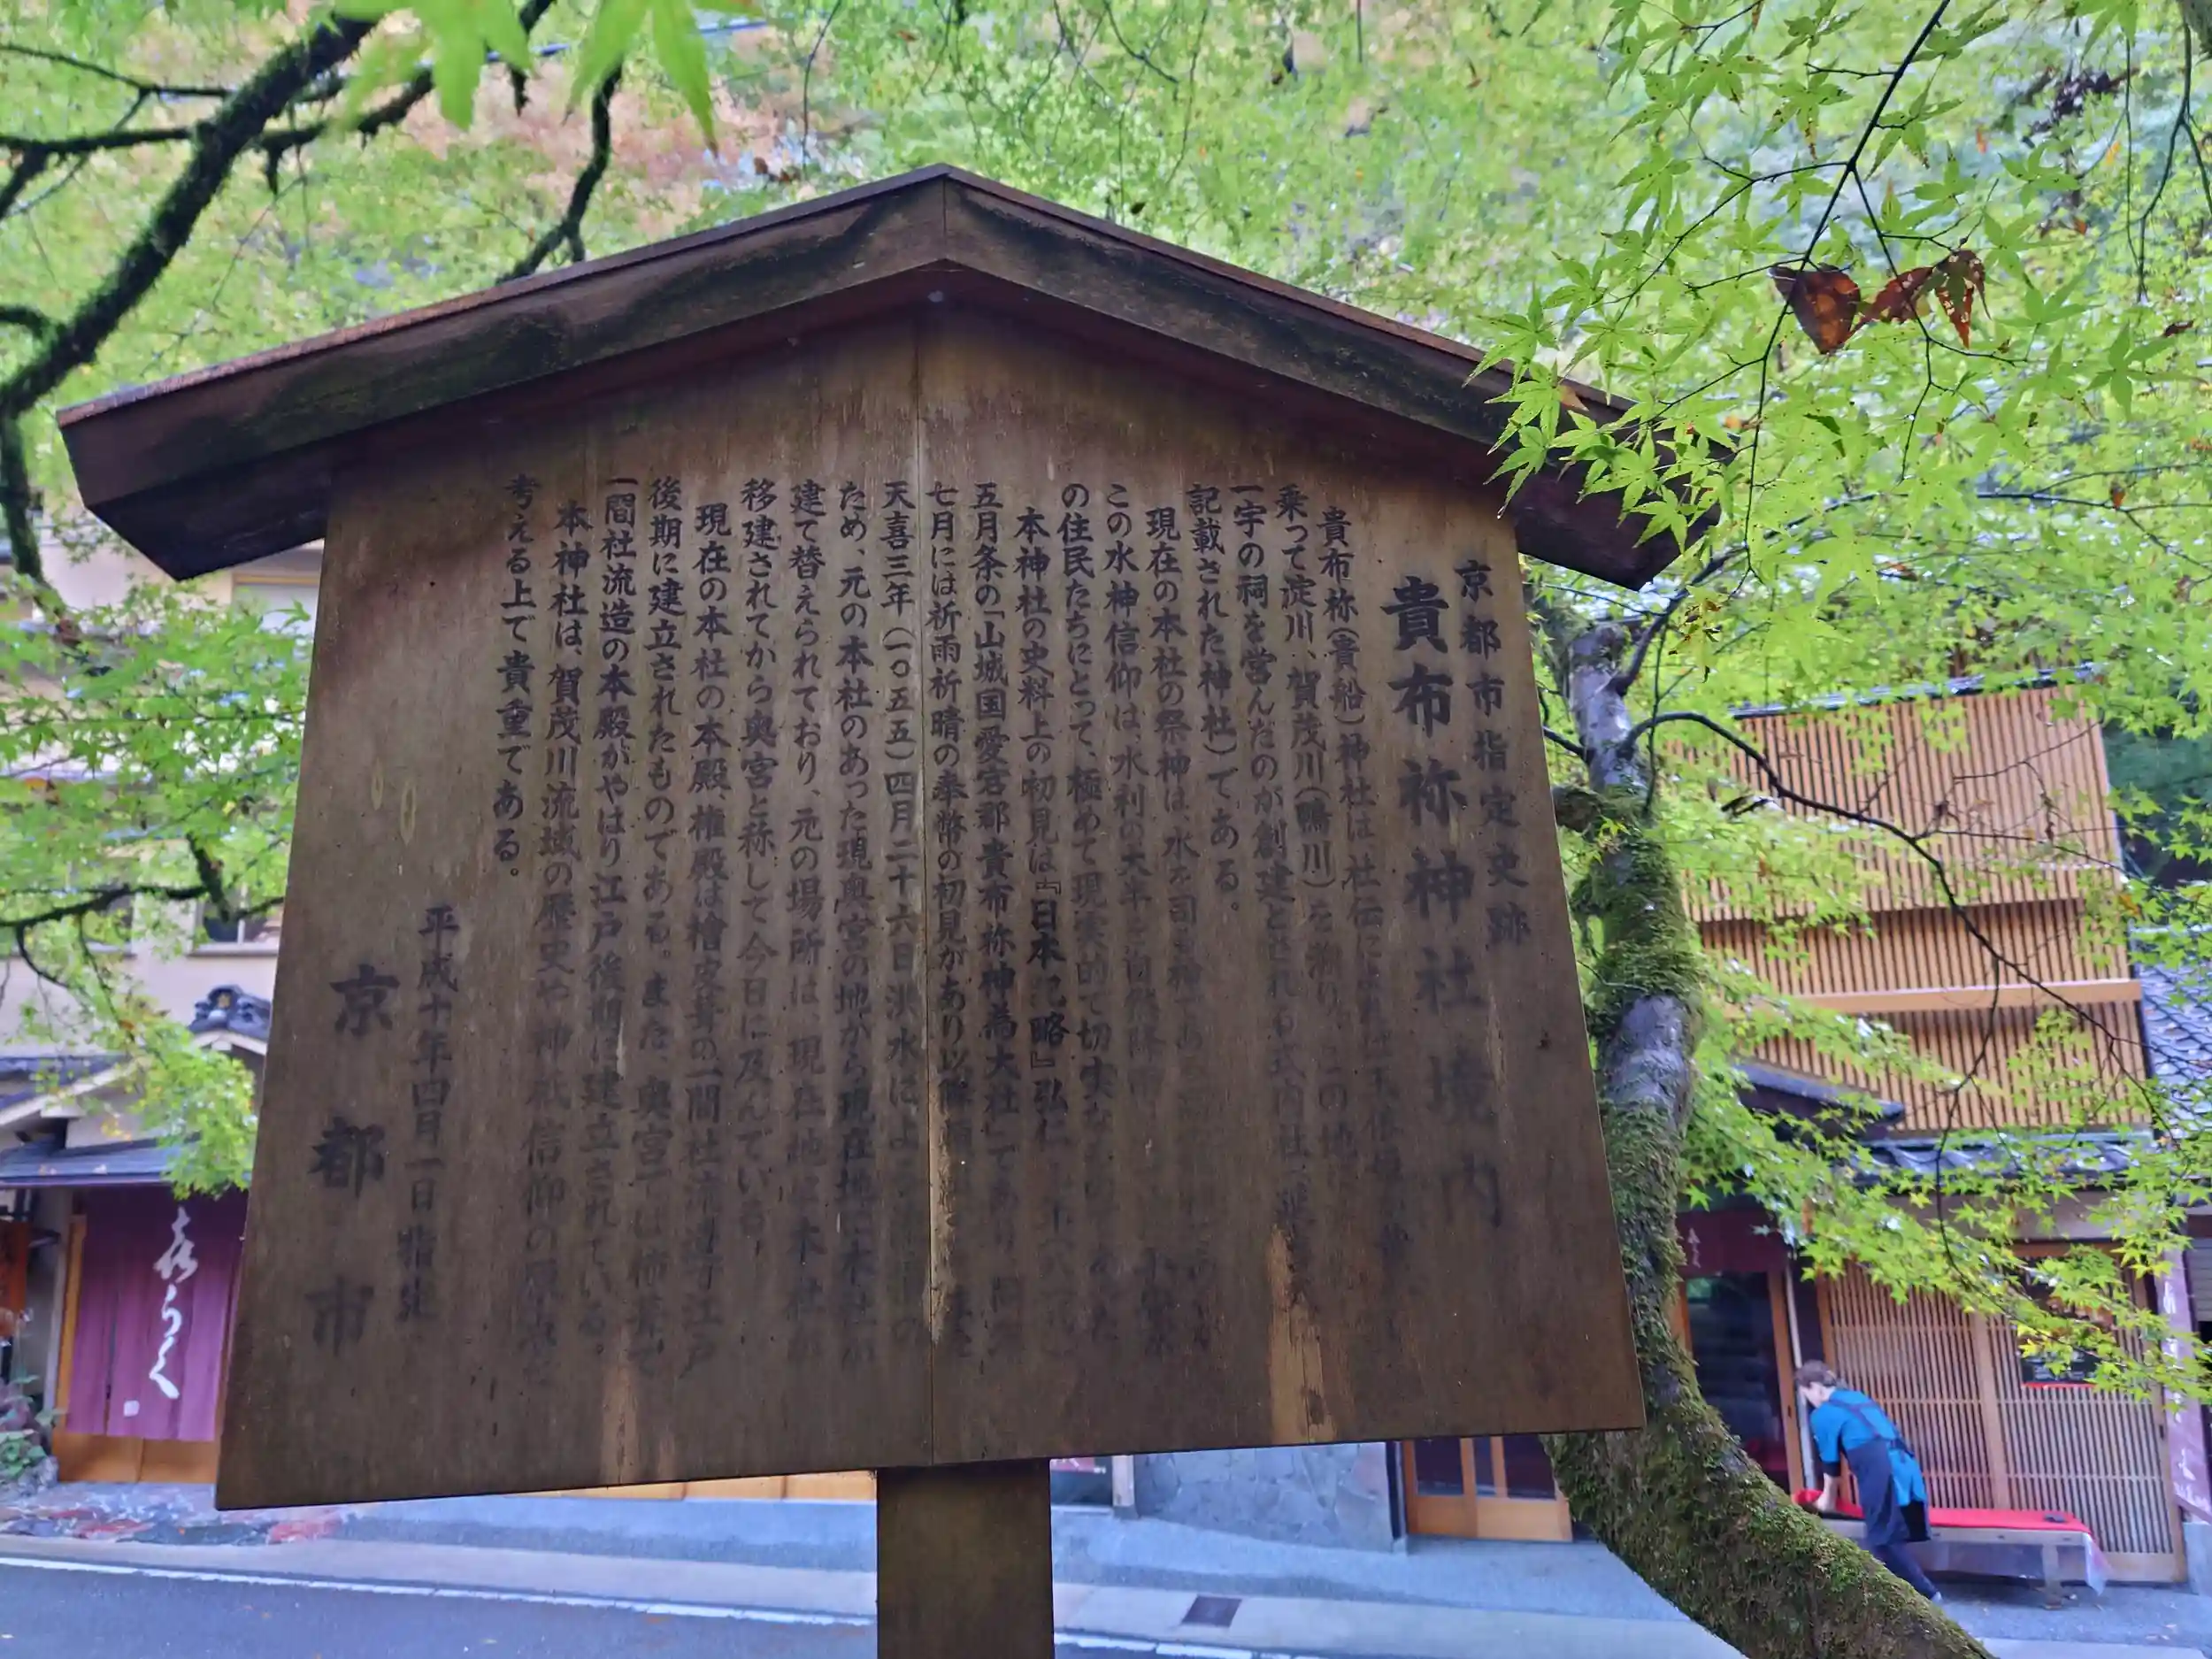 京都市指定史跡
貴布祢神社境内
貴布祢(貴船)神社は社伝によれば玉依
乗って淀川、賀茂川(鴨川)を溯り、この地
一宇の祠を営んだのが創建とされる式内社
記載された神社)である。
現在の本社の祭神は、水を司る神であ
この水神信仰は、水利の大半を自然降雨
の住民たちにとって、極めて現実的で切実な
本神社の史料上の初見は『日本紀略』弘仁
五月条の「山城国愛宕郡貴布祢神為大社」であり、同
七月には祈雨祈晴の奉幣の初見があり以降
天喜三年(一〇五五)四月二十六日洪水によ
ため、元の本社のあった現奥宮の地から現在地に本社が
建て替えられており、元の場所は現在地に本社が
移建されてから奥宮と称して今日に及んでいる。
現在の本社の本殿、権殿は檜皮葺の一間社流造で江戸
後期に建立されたものである。また、奥宮では
一間社流造の本殿がやはり江戸後期に建立されている。
本神社は、賀茂川流域の歴史や神祇信仰の
考える上で貴重である。
平成十年四月一日指定
京都市
きらく